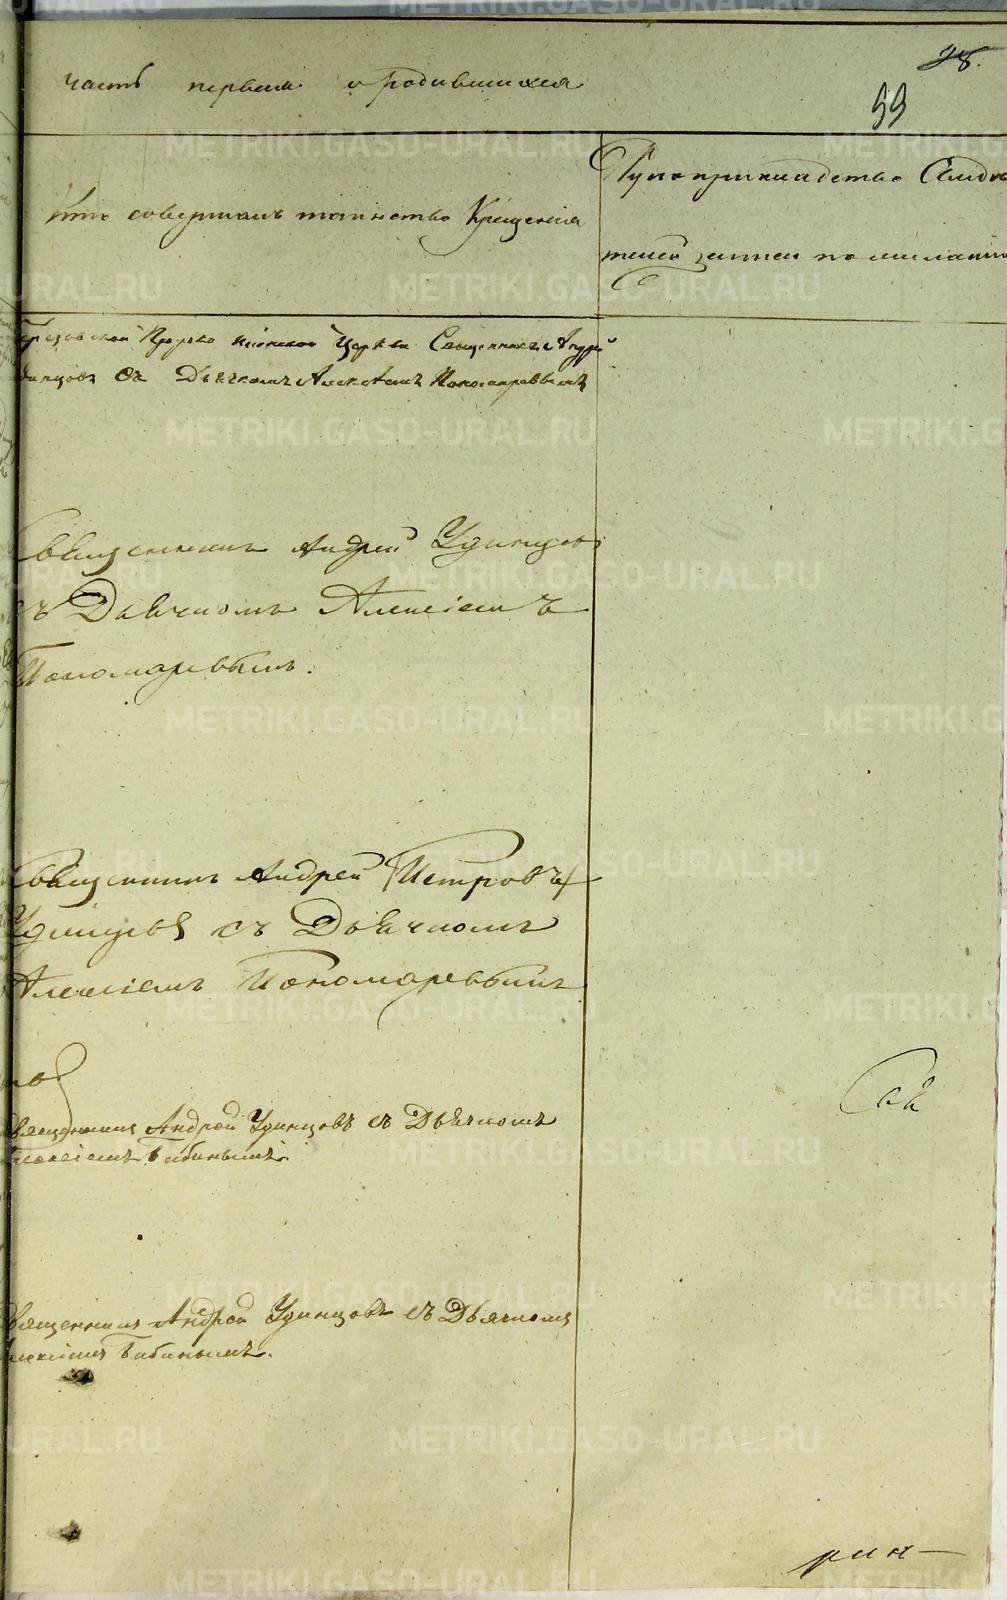 28.
часть первая о родившихся
99
Кто совершалъ таинство Крещенія
Рукоприкладство Свидѣ
телей записи по желанію
Церкви Священникъ Андрей
динцовъ Съ Дьячкомъ Алексѣемъ Пономаревымъ
Священникъ Андрей Удинцовъ
съ Дьячкомъ Алексіемъ
Пономаревымъ.
Священникъ Андрей Петровъ
Удинцовъ съ Дьячкомъ
Алексіемъ Пономаревымъ
Священникъ Андрей Удинцовъ съ Дьячкомъ
Алексіемъ Бабинымъ.
Священникъ Андрей Удинцовъ съ Дьячкомъ
Алексіемъ Бабинымъ.
METRIKI.GASO-URAL.RU